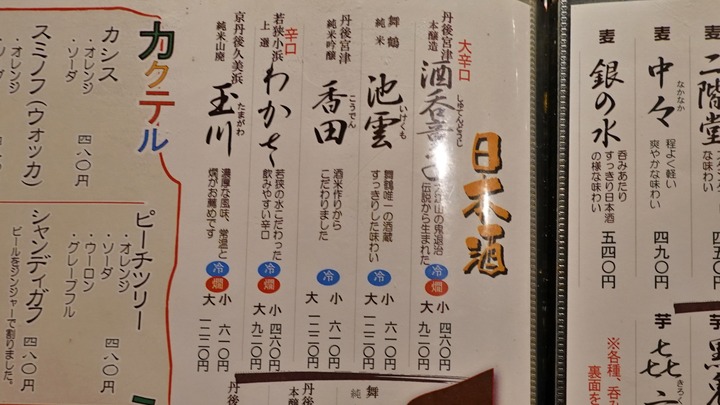 麦
二階堂
な味わい
麦
中々
なかなか
程よく軽い
爽やかな味わい
四九〇円
麦
銀の水
呑みあたり
すっきり日本酒
の様な味わい
五四〇円
芋
芋
㐂六
きろく
※各種、呑み
裏面を
日本酒
大辛口
丹後宮津
本醸造
酒呑童子
しゅてんどうじ
大江山の鬼退治
伝説から生まれた
冷
燗
小 四六〇円
大 九二〇円
舞鶴
純米
池雲
いけくも
舞鶴唯一の酒蔵
すっきりした味わい
冷
燗
小 六一〇円
大 一二二〇円
丹後宮津
純米吟醸
香田
こうでん
酒米作りから
こだわりました
冷
小 六一〇円
大 一二二〇円
辛口
若狭小浜
上選
わかさ
若狭の水こだわった
飲みやすい辛口
冷
燗
小 四六〇円
大 九二〇円
京丹後久美浜
純米山廃
玉川
たまがわ
濃厚な風味、常温と
燗がお薦めです
冷
燗
小 六一〇円
大 一二二〇円
舞
純
丹後
本醸
丹後
カクテル
カシス
・オレンジ
・ソーダ
四八〇円
スミノフ(ウォッカ)
・オレンジ
ピーチツリー
・オレンジ
・ソーダ
・ウーロン
・グレープフル
四八〇円
シャンディガフ
ビールをジンジャーで割りました。
四八〇円